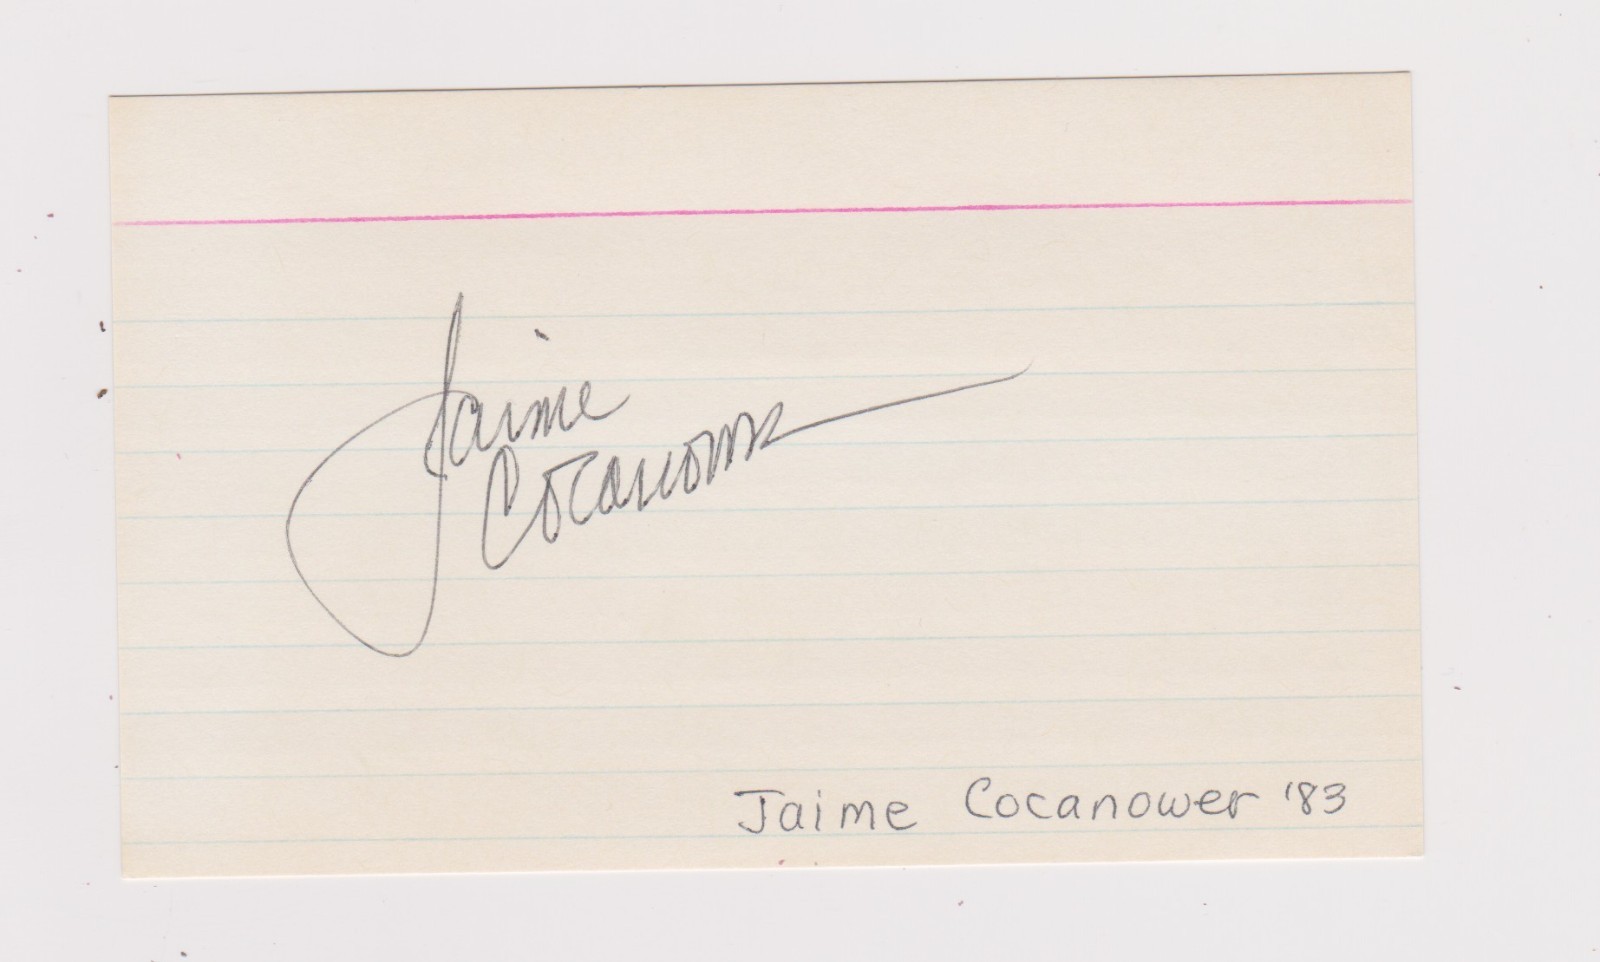 Jaime
Cocanower
Jaime Cocanower '83